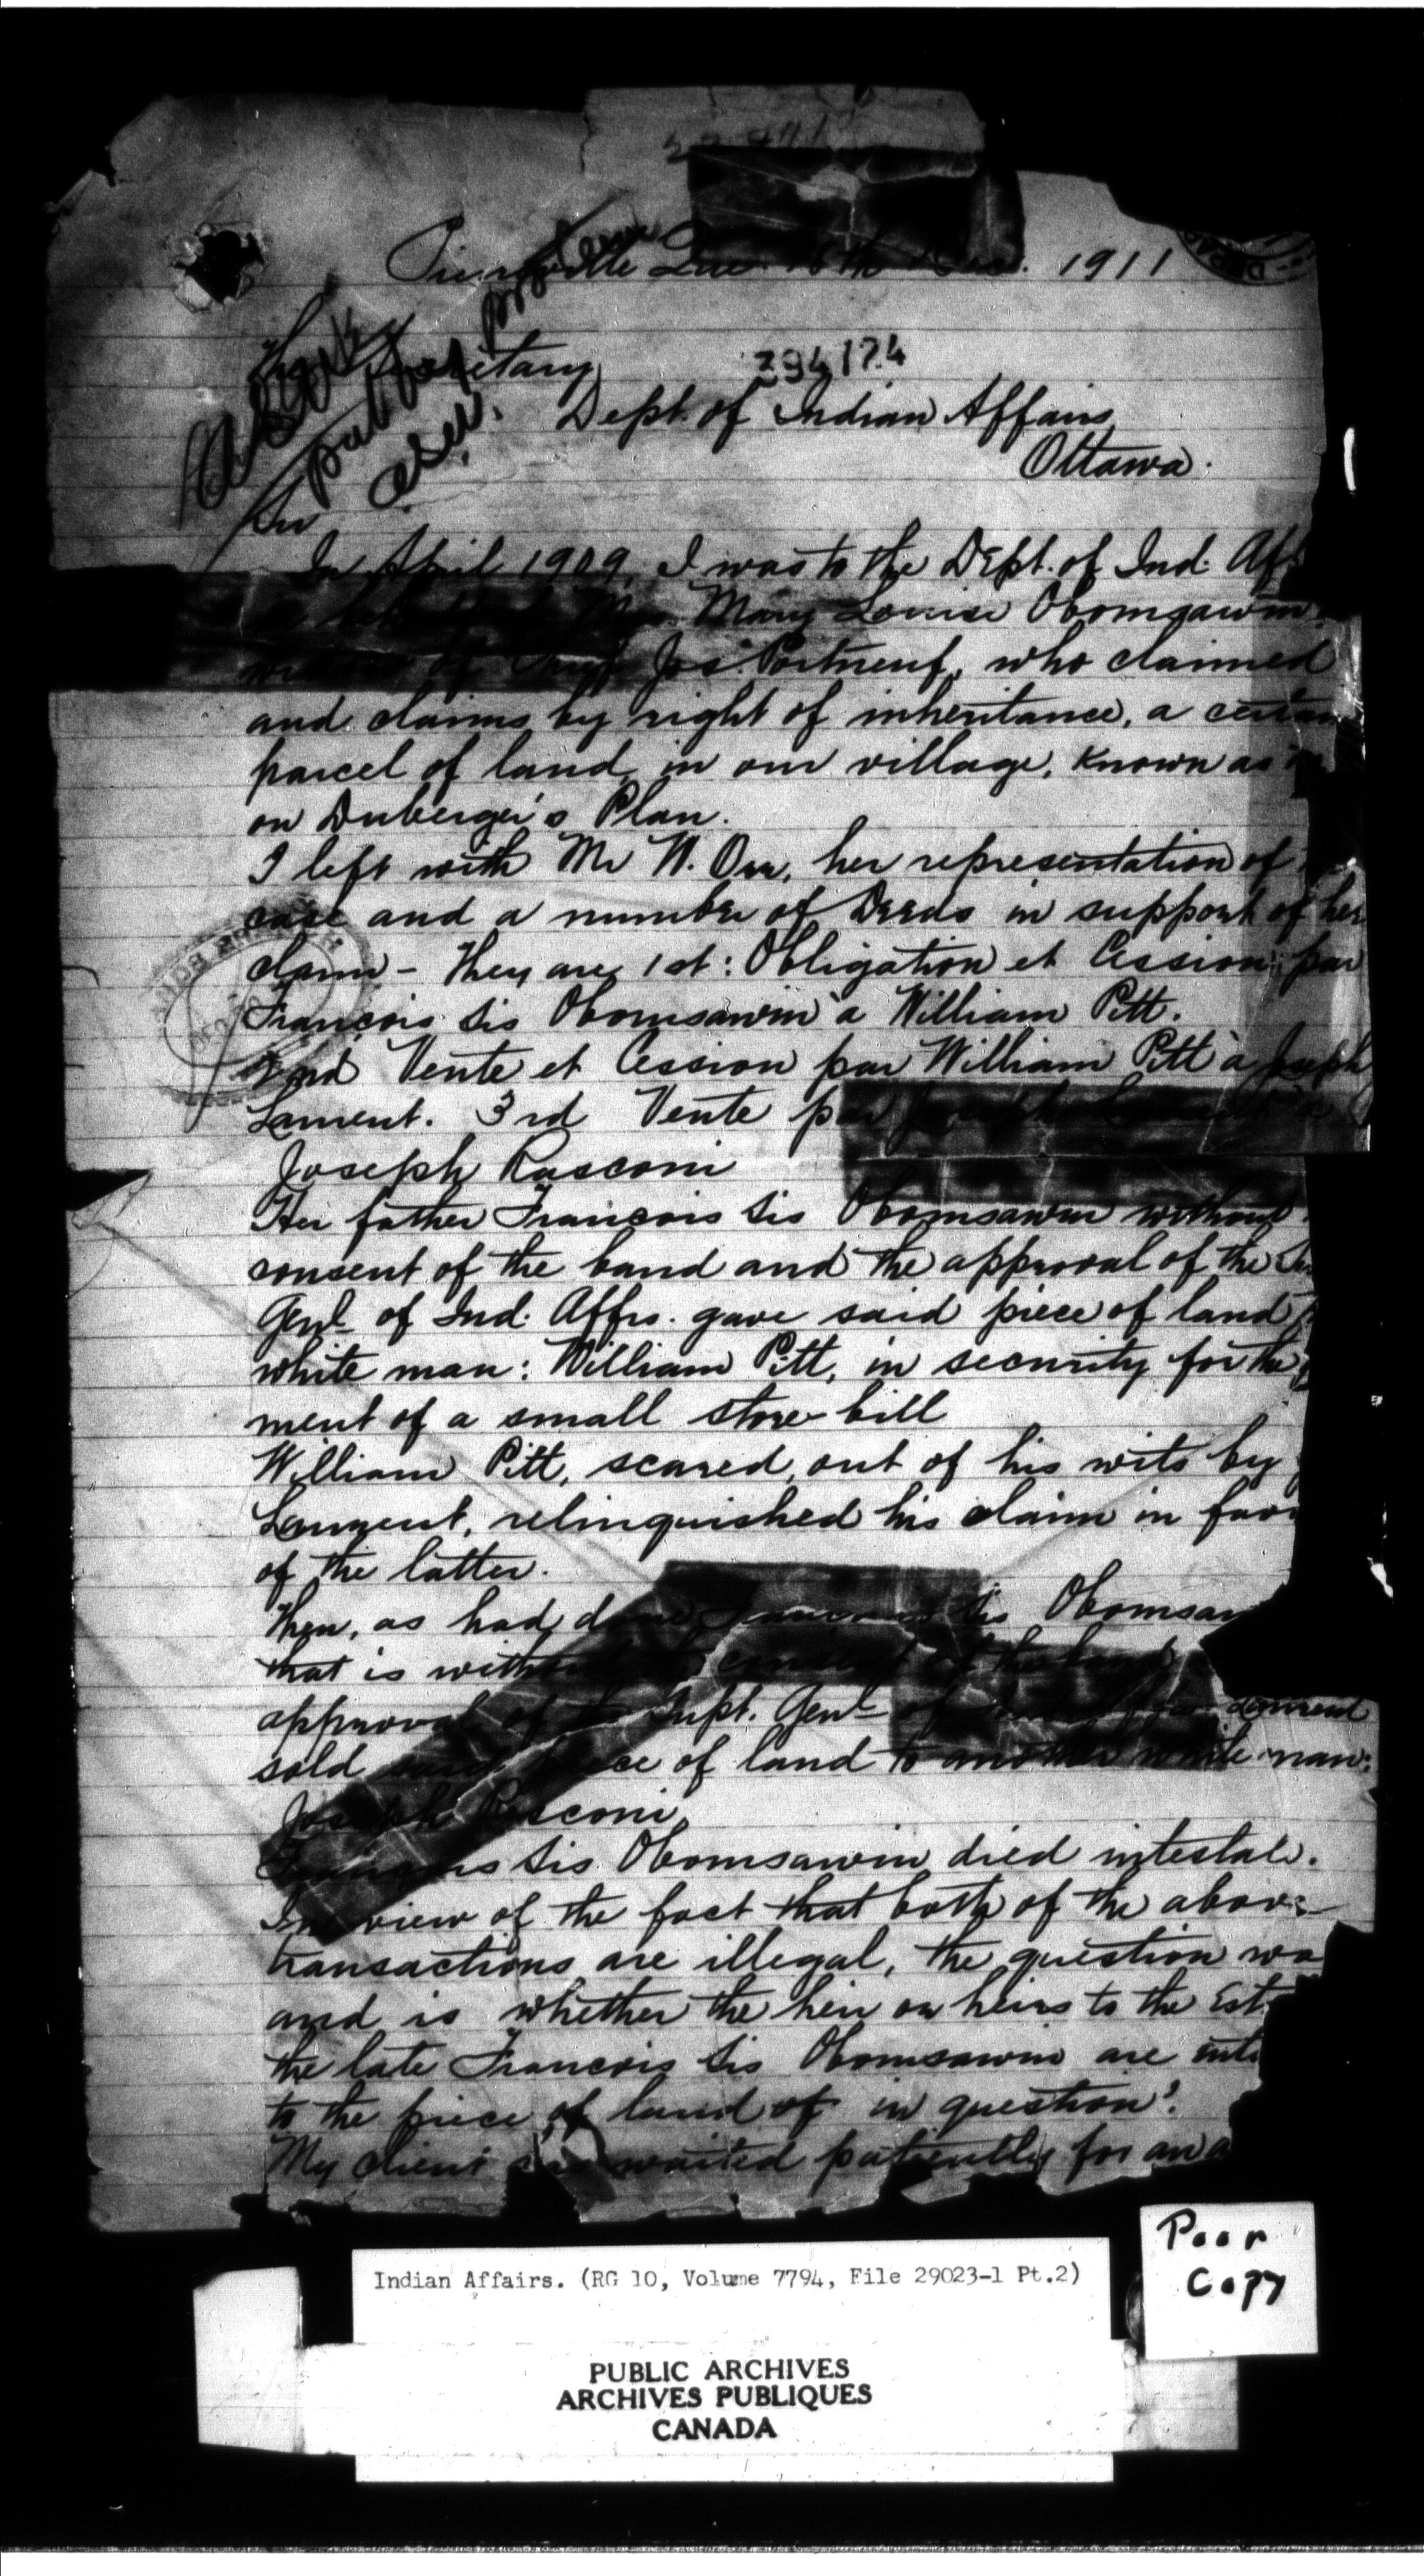 Pierreville Que. 16th Dec. 1911
The Secretary
394174
Dept. of Indian Affairs
Ottawa.
Sir
In April 1909, I was to the Dept. of Ind. Aff
Mrs. Mary Louise Obomsawin,
widow of Jos. Portneuf, who claimed
and claims by right of inheritance, a certain
parcel of land in our village, known as
on Duberger's Plan.
I left with Mr W. Orr, her representation of
case and a number of Deeds in support of her
claim – They are, 1st: Obligation et Cession par
François Sis Obomsawin à William Pitt.
2nd Vente et Cession par William Pitt à Joseph
Laurent. 3rd Vente par Joseph Laurent à
Joseph Rasconi
Her father François Sis Obomsawin without
consent of the band and the approval of the
Genl of Ind. Affrs. gave said piece of land
white man: William Pitt, in security for the
ment of a small store-bill
William Pitt, scared, out of his wits by
Laurent, relinquished his claim in fav
of the latter.
Then, as had done François Sis Obomsaw
that is without the consent of the band
approval of the Supt. Genl of Laurent
sold said piece of land to another white man:
Joseph Rasconi
François Sis Obomsawin died intestate.
In view of the fact that both of the above
transactions are illegal, the question wa
and is whether the heir or heirs to the Est
the late François Sis Obomsawin are enti
to the piece of land of in question?
My client has waited patiently for an a
Poor
Copy
Indian Affairs. (RG 10, Volume 7794, File 29023-1 Pt.2)
PUBLIC ARCHIVES
ARCHIVES PUBLIQUES
CANADA